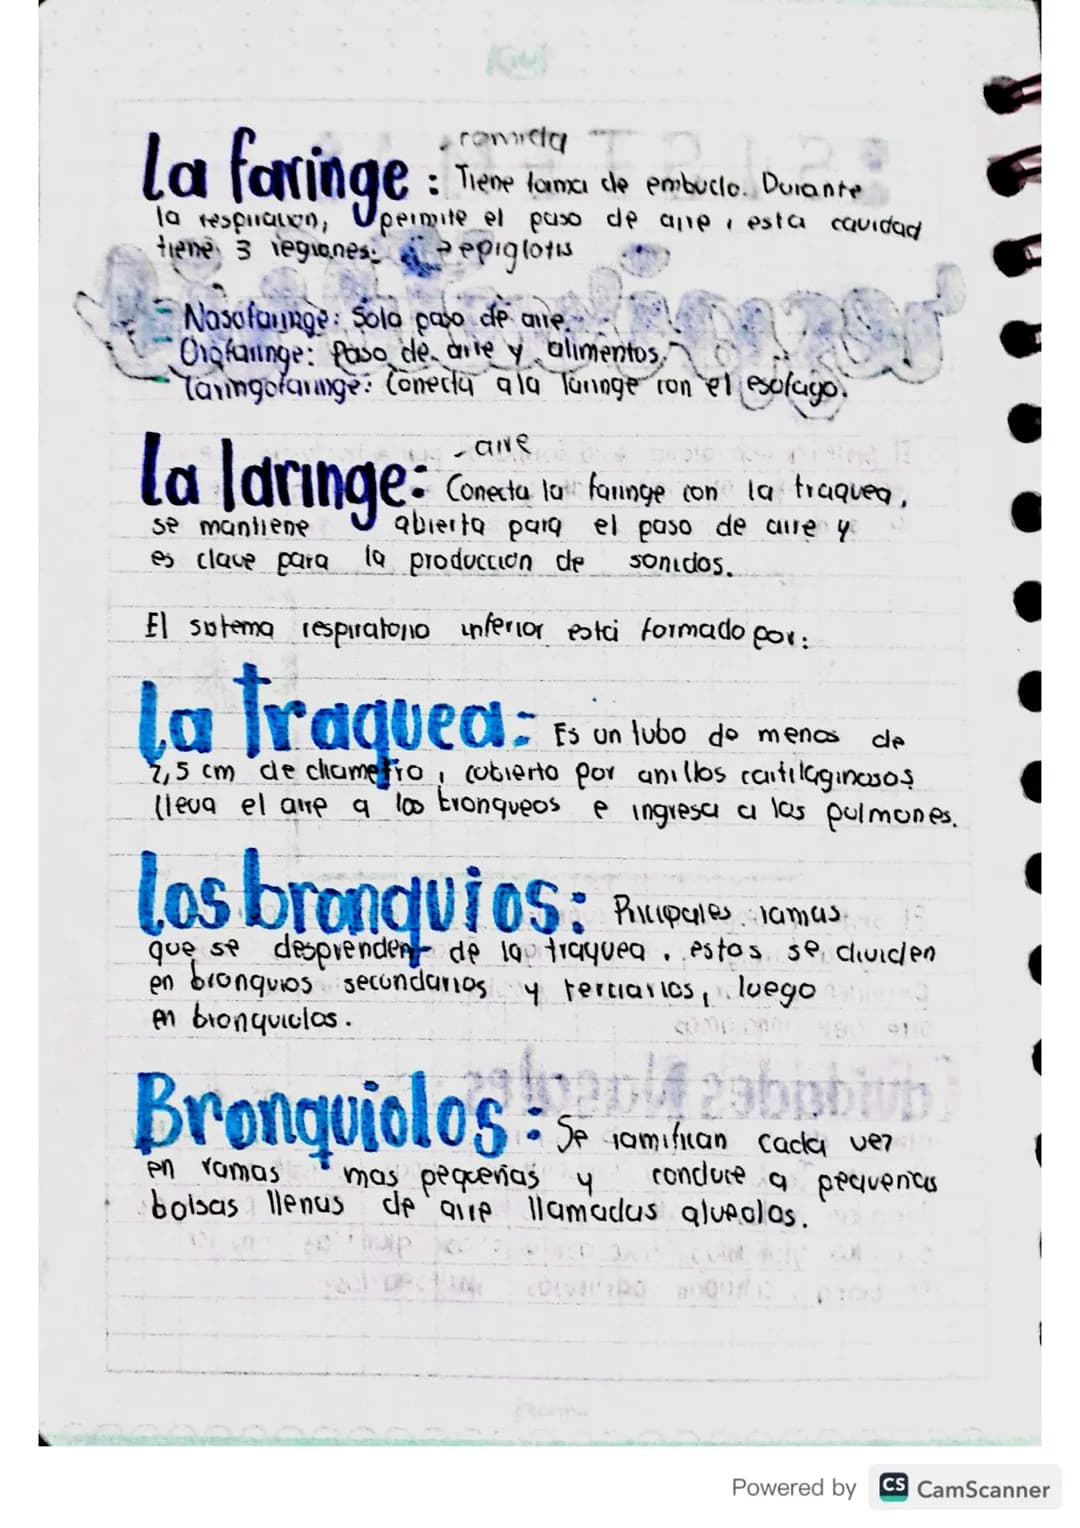 - comida
La faringe: Tiene forma de embudo. Durante
la respiracion, permite el paso de aire, esta cavidad
tiene 3 regiones: → epiglotis
- Nasofaringe: Solo paso de aire.
- Orofaringe: Paso de aire y alimentos.
- Laringofaringe: Conecta a la laringe con el esofago.
- aire
La laringe: Conecta la faringe con la traquea,
se mantiene abierta para el paso de aire y
es clave para la produccion de sonidos.
El sistema respiratorio inferior está formado por:
La Traquea: Es un tubo de menos de
2,5 cm de diametro, cubierto por anillos cartilaginosos
lleva el aire a los bronqueos e ingresa a los pulmones.
Los bronquios: Pricipales ramas
que se desprenden de la traquea, estos se dividen
en bronquios secundarios y terciarios, luego
en bronquiolos.
Bronquiolos: Se ramifican cada vez
en ramas mas pequeñas y conduce a pequeñas
bolsas llenas de aire llamadas alveolos.
Powered by CS CamScanner